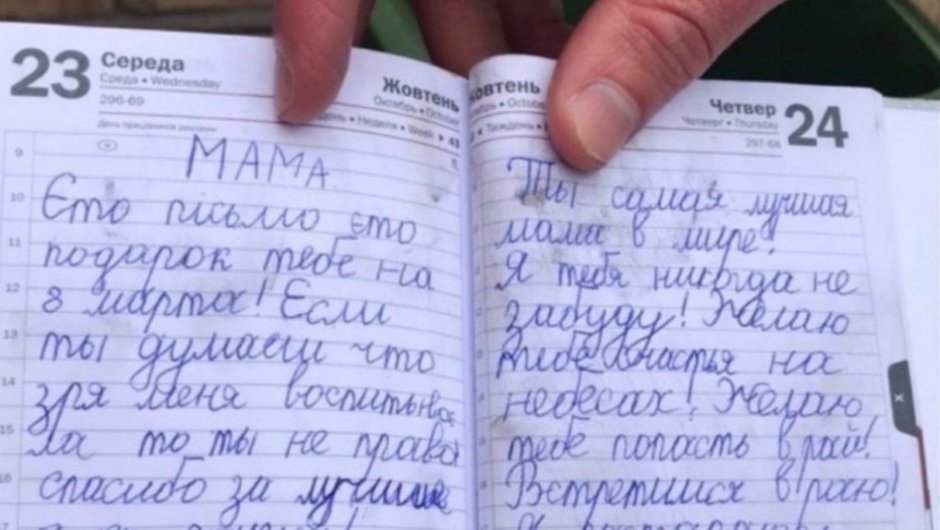 23 Середа
Среда • Wednesday
296-69
Жовтень
Октябрь • October
День працівника реклами
ень • Неделя • Week ▸ 43
9
МАМА
10
Єто письмо єто
11
подарок тебе на
12
8 марта! Если
13
ты думаеш что
14
зря меня воспитыва
15
ла то ты не права
16
спасибо за лучшие
овтень
Четвер 24
ябрь • October
Четверг • Thursday
• Тиждень •
297-68
Ты самая лучшая
мама в мире!
Я тебя никогда не
забуду! Желаю
тебе счастья на
небесах! Желаю
тебе попасть в рай!
Встретимся в раю!
X